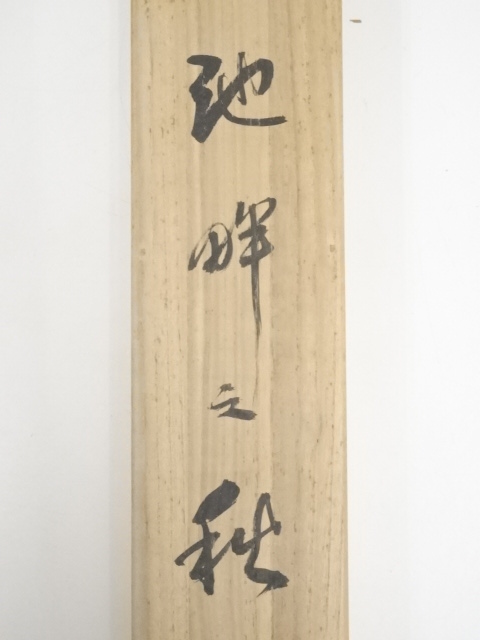 池畔之秋